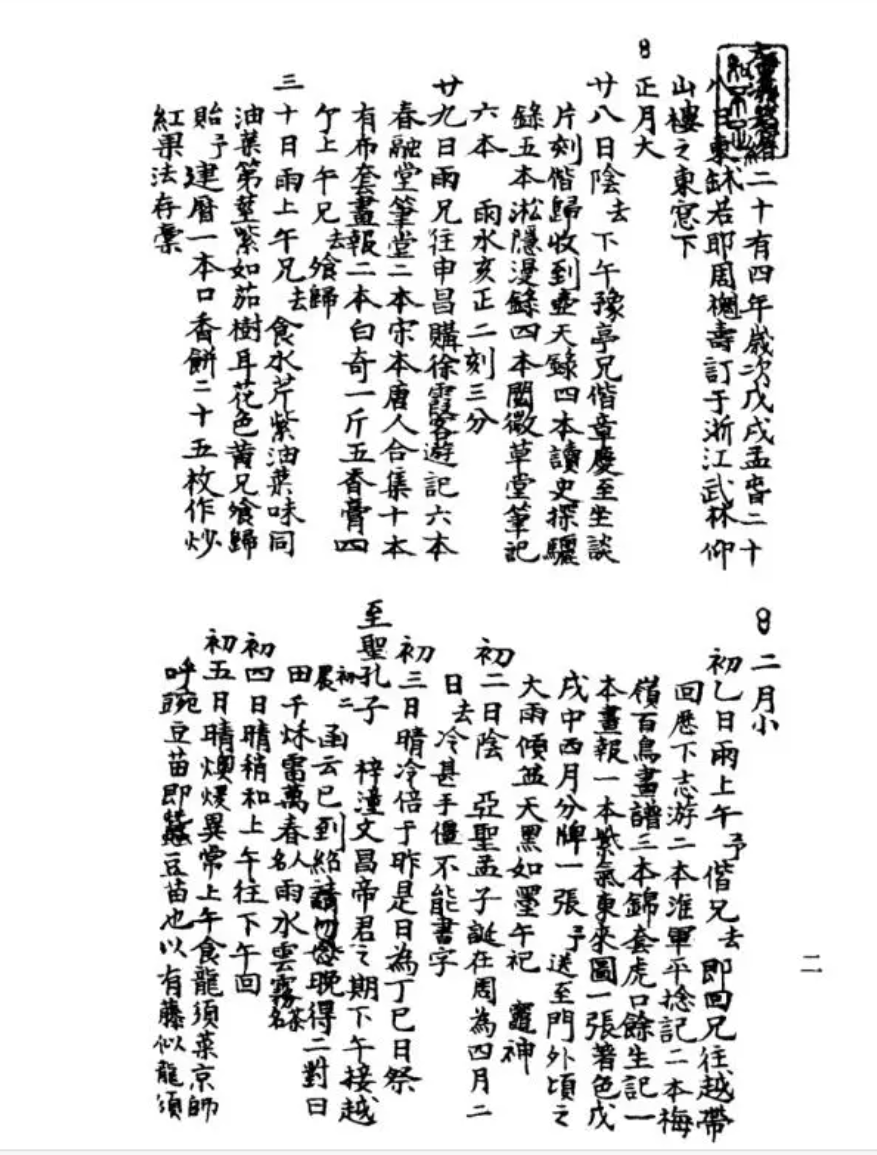 大清光緒二十有四年歲次戊戌孟陬二十
八日東越若耶周樹壽訂于浙江武林仰
山樓之東窓下
正月大
廿八日陰去下午豫亭兄偕章慶至坐談
片刻偕歸收到壺天錄四本讀史探驪
錄五本淞隱漫錄四本閱微草堂筆記
六本 雨水亥正二刻三分
廿九日雨兄往申昌購徐霞客遊記六本
春融堂筆記二本宋本唐人合集十本
有布套畫報二本白奇一斤五香膏四
个上午兄去飧歸
三十日雨上午兄去食水芹紫油菜味同
油菜第莖紫如茄樹耳花色黃兄飧歸
貽予建曆一本口香餅二十五枚作炒
紅果法存稾
二月小
初乙日雨上午予偕兄去即回兄往越帶
回歷下志游二本淮軍平捻記二本梅
嶺百鳥畫譜三本錦套虎口餘生記一
本畫報一本紫氣東來圖一張著色戊
戌中西月分牌一張予送至門外頃之
大雨傾盆天黑如墨午祀 竈神
初二日陰 亞聖孟子誕在周為四月二
日去冷甚手僵不能書字
初三日晴冷倍于昨是日為丁巳日祭
至聖孔子 梓潼文昌帝君之期下午接越
初二晨函云已到紹請勿念晚得二對曰
田千秌雷萬春人名雨水雲霧茶名
初四日晴稍和上午往下午回
初五日晴燠煖異常上午食龍須菜京師
呼豌豆苗即蠶豆苗也以有藤似龍須
二